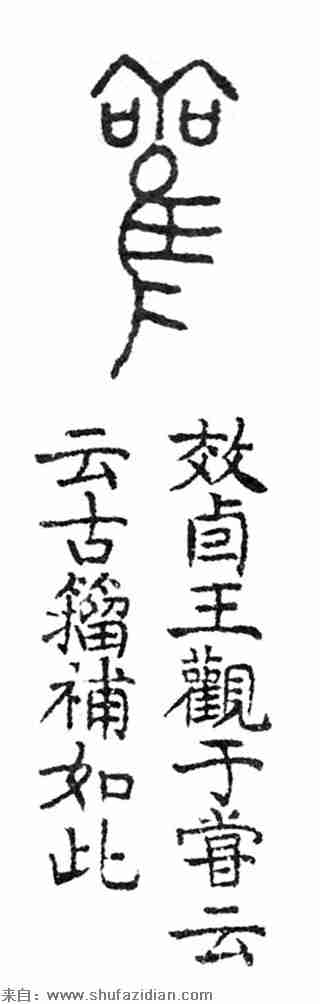 雚
效卣王觀于嘗云
云古籀補如此
来自：www.shufazidian.com